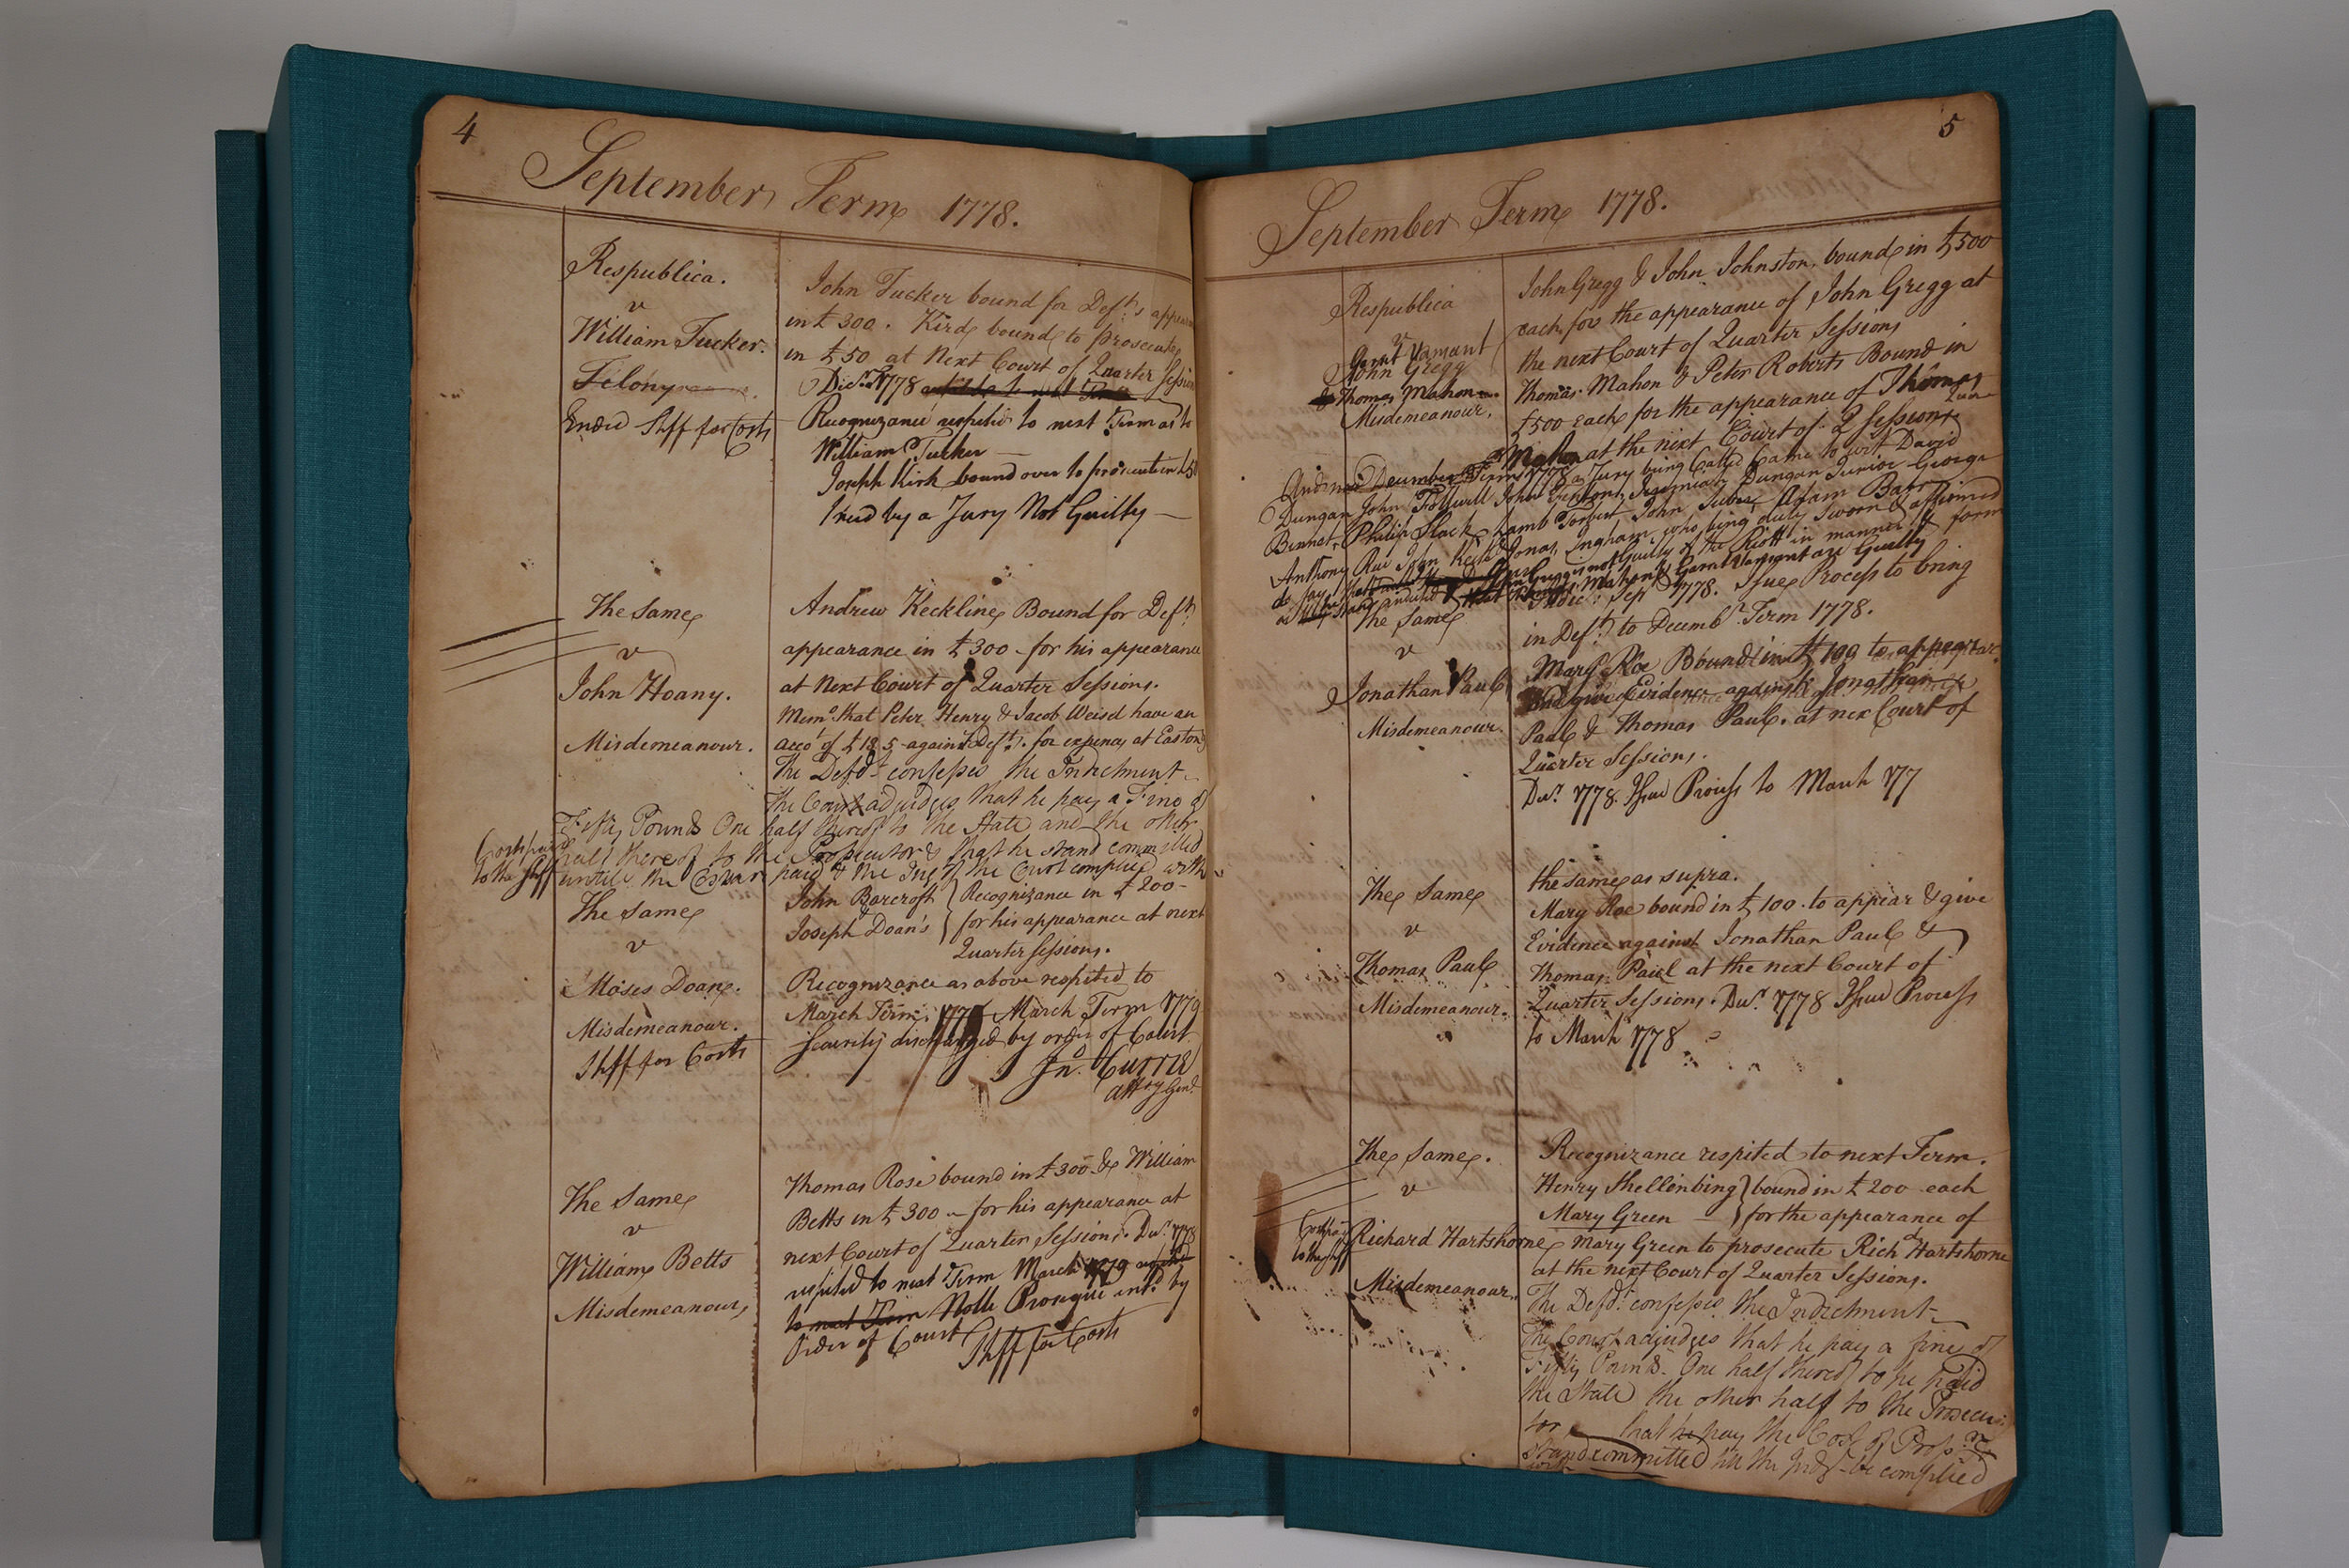 4
September Term 1778.
Respublica.
v
William Tucker.
Felony
Ended Shff for Costs
John Tucker bound for Deft.s appear
in £300. Kirk bound to prosecute
in £50 at Next Court of Quarter Session
Decr. 1778
Recognizance respited to next Term as to
William Tucker
Joseph Kirk bound over to prosecute in £50
tried by a Jury Not Guilty
The Same
v
John Hoany.
Misdemeanour.
Andrew Keckline Bound for Deft.
appearance in £300 - for his appearance
at Next Court of Quarter Sessions.
Memo. that Peter Henry & Jacob Weisel have an
acco.t of £18 5 against Deft. for expences at Easton
The Defdt. confesses the Indictment
The Court adjudges that he pay a Fine of
Fifty Pounds One half thereof to the State and the other
half thereof to the Prosecutor & that he stand committed
until the paid & the of the Court complied with
Costs paid
to the Shff
The Same
v
Moses Doan.
Misdemeanour.
Shff for Costs
John Barcroft } Recognizance in £200-
& Joseph Doan's } for his appearance at next
Quarter Sessions.
Recognizance as above respited to
March Term. March Term 1779
Security discharged by order of Court
Jno. Currie
Atty Genl.
The Same
v
William Betts
Misdemeanour,
Thomas Rose bound in £300 & William
Betts in £300 - for his appearance at
next Court of Quarter Sessions. Decr. 1778
respited to next Term March 1779 respited
to next Term Nolle Prosequi entd by
Order of Court Shff for Costs
5
September Term 1778.
Respublica
v
Garret Vansant
John Gregg
& Thomas Mahon
Misdemeanour.
John Gregg & John Johnston, bound in £500
each for the appearance of John Gregg at
the next Court of Quarter Sessions
Thomas Mahon & Peter Roberts Bound in
£500 each for the appearance of Thomas
Mahon at the next Court of Q Sessions
And now December Term 1778 a Jury being Called Came to wit David
Dungan John Follwell John Fenton Jeremiah Dungan Junior George
Bennet Philip Slack Lamb Torbert John Adam Barr
Anthony Rue John Keith Jonas Ingham who being duly Sworn & affirmed
do say that John Gregg is not Guilty of the Riott in manner & form
as he stands indicted that Thomas Mahon & Garret Vansant are Guilty
The Same
v
Jonathan Paul
Misdemeanour.
Indict: Sep 1778. Issue Process to bring
in Deft. to Decembr. Term 1778.
Mary Roe Bound in £100 to appear
and give Evidence against Jonathan
Paul & Thomas Paul. at nex Court of
Quarter Sessions.
Decr. 1778. Issue Process to March 177
The Same
v
Thomas Paul
Misdemeanour.
the same as supra.
Mary Roe bound in £100. to appear & give
Evidence against Jonathan Paul &
Thomas Paul at the next Court of
Quarter Sessions. Decr. 1778 Issue Process
to March 1778
The Same.
v
Richard Hartshorne
Misdemeanour.
Costs pd.
to the Shff
Recognizance respited to next Term.
Henry Shellenbing } bound in £200 each
Mary Green - } for the appearance of
Mary Green to prosecute Richd Hartshorne
at the next Court of Quarter Sessions.
The Defdt. confesses the Indictment
The Court adjudges that he pay a fine of
Fifty Pounds. One half thereof to be paid
the State the other half to the Prosecu
tor that he pay the Cost of Pros.n &
stand committed till the Judgt. be complied
with